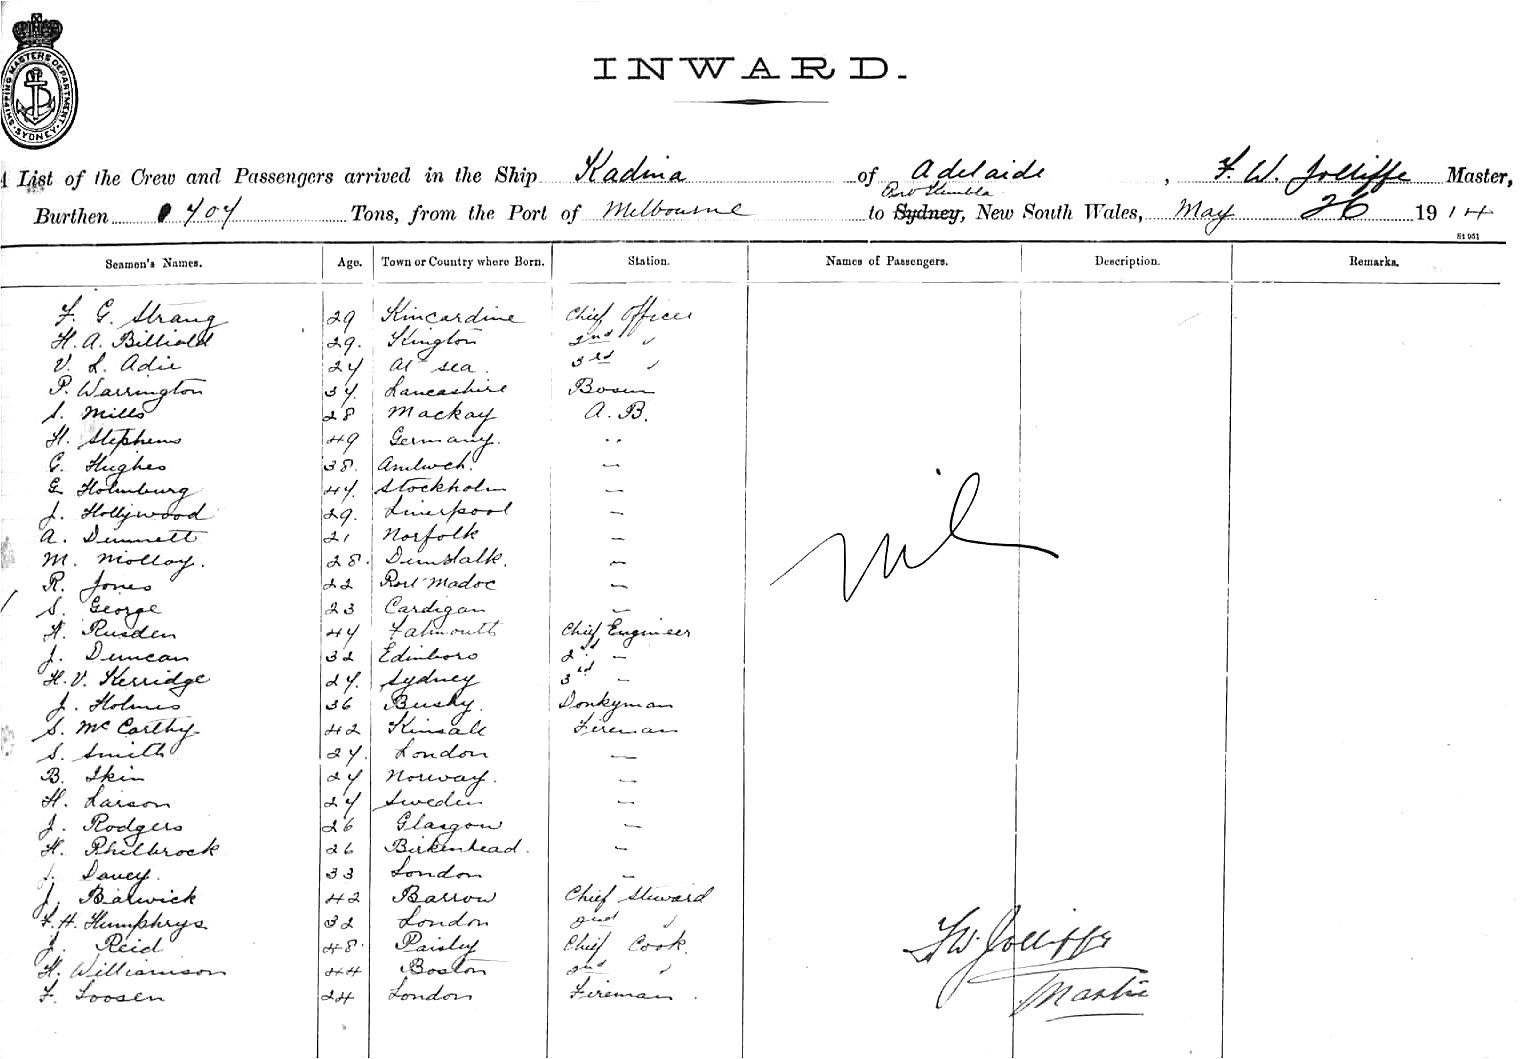 SHIPPING MASTERS DEPARTMENT
SYDNEY
INWARD.
List of the Crew and Passengers arrived in the Ship Kadina of Adelaide, F. W. Jolliffe Master,
Port Kembla
Burthen Tons, from the Port of Melbourne to Sydney, New South Wales, May 26 1914
St 951
Seamen's Names. Age. Town or Country where Born. Station. Names of Passengers. Description. Remarks.
F. G. Strang 29 Kincardine Chief Officer
H. A. 29. Kington 2nd "
V. L. Adie 24 At sea. 3rd "
P. Warrington 34. Lancashire Bosun
S. Mills 28 Mackay A. B.
H. Stephens 49 Germany. "
G. Hughes 38. Amlwch. —
G Holmburg 44. Stockholm —
J. Hollywood 29. Liverpool —
A. Dimmett 21 Norfolk —
M. Molloy. 28. Dundalk. —
R. Jones 22 Port Madoc —
S. George 23 Cardigan —
H. Rusden 44 Falmouth Chief Engineer
J. Duncan 32 Edinboro 2nd —
H. V. Kerridge 24. Sydney 3rd —
J. Holmes 36 Donkyman
S. McCarthy 42 Kinsale Fireman
S. Smith 24. London —
B. Skin 24 Norway. —
H. Larson 24 Sweden —
J. Rodgers 26 Glasgow —
H. Philbrock 26 Birkenhead. —
J. Davey. 33 London —
J. Barwick 42 Barrow Chief Steward
F. H. Humphrys 32 London 2nd "
J. Reid 48. Paisley Chief Cook.
H. Williamson 44 Boston 2nd "
F. Loosen 24 London Fireman.
Nil
F W. Jolliffe
Master